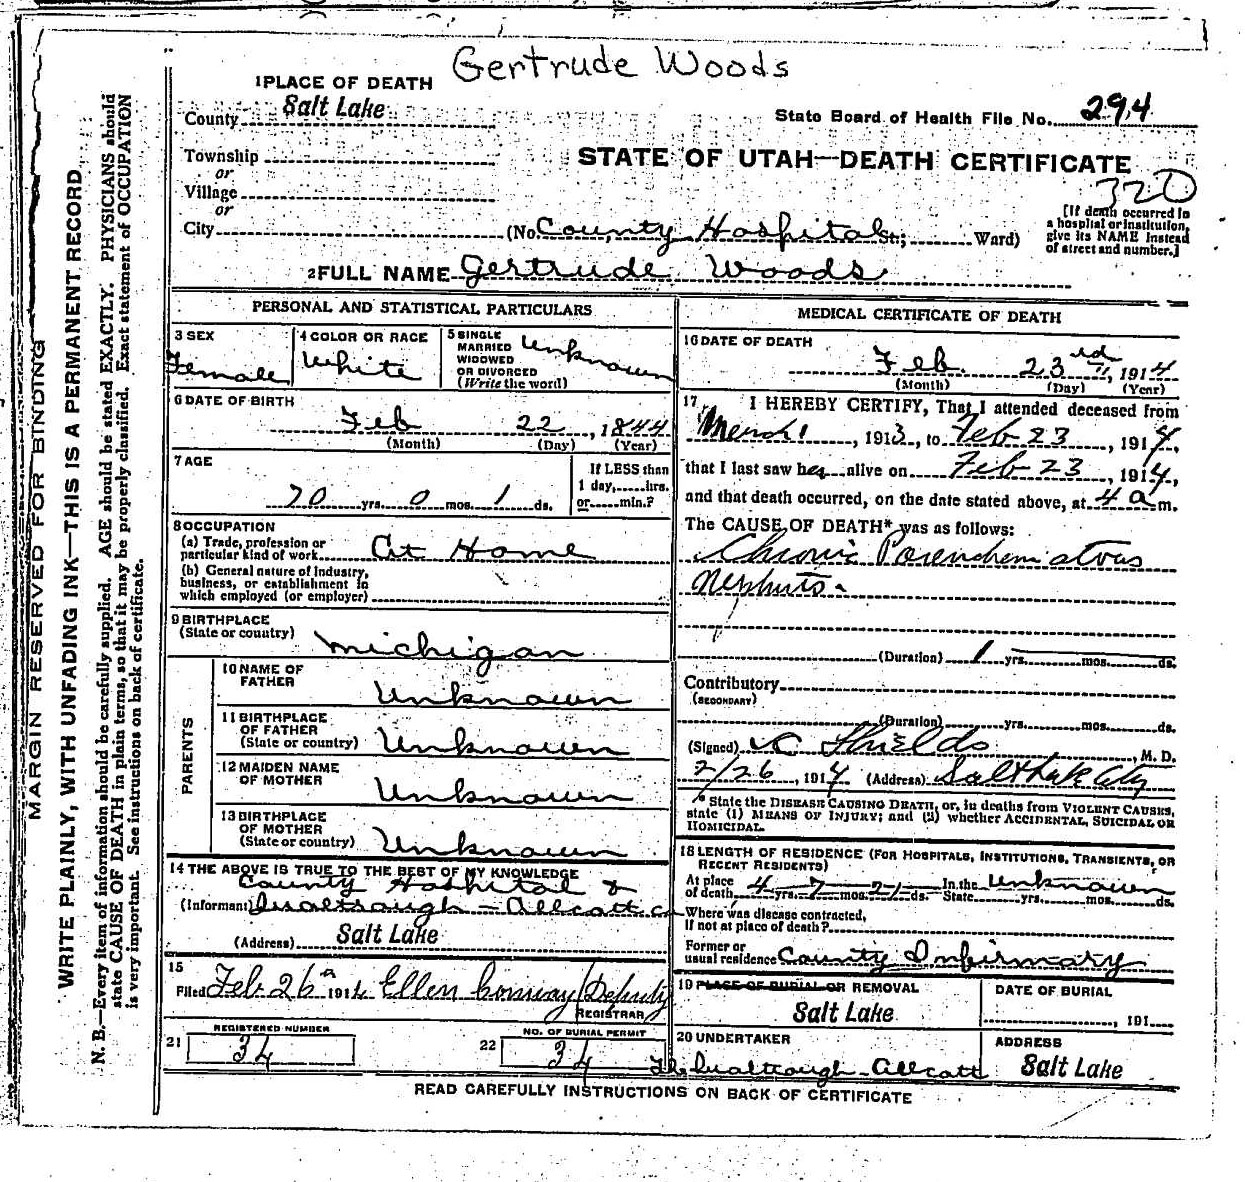 Gertrude Woods
1 PLACE OF DEATH
County Salt Lake
State Board of Health File No. 294
Township
or
STATE OF UTAH—DEATH CERTIFICATE
Village
or
320
City (No. County Hospital St.; Ward)
[If death occurred in
a hospital or institution,
give its NAME instead
of street and number.]
2 FULL NAME Gertrude Woods
PERSONAL AND STATISTICAL PARTICULARS
3 SEX
Female
4 COLOR OR RACE
White
5 SINGLE
MARRIED
WIDOWED
OR DIVORCED
(Write the word)
Unknown
6 DATE OF BIRTH
Feb 22, 1844
(Month) (Day) (Year)
7 AGE
70 yrs. 0 mos. 1 ds.
If LESS than
1 day, hrs.
or min.?
8 OCCUPATION
(a) Trade, profession or
particular kind of work At Home
(b) General nature of Industry,
business, or establishment in
which employed (or employer)
9 BIRTHPLACE
(State or country) Michigan
PARENTS
10 NAME OF
FATHER Unknown
11 BIRTHPLACE
OF FATHER
(State or country) Unknown
12 MAIDEN NAME
OF MOTHER Unknown
13 BIRTHPLACE
OF MOTHER
(State or country) Unknown
14 THE ABOVE IS TRUE TO THE BEST OF MY KNOWLEDGE
County Hospital &
(Informant) Allcott co
(Address) Salt Lake
15
Filed Feb 26 1914 Ellen Conway Deputy
REGISTRAR
21 REGISTERED NUMBER
34
22 NO. OF BURIAL PERMIT
34
MEDICAL CERTIFICATE OF DEATH
16 DATE OF DEATH
Feb. 23rd, 1914
(Month) (Day) (Year)
17 I HEREBY CERTIFY, That I attended deceased from
March 1, 1913, to Feb 23, 1914,
that I last saw her alive on Feb 23, 1914,
and that death occurred, on the date stated above, at 4 a m.
The CAUSE OF DEATH* was as follows:
Chronic Parenchematous
Nephritis
(Duration) 1 yrs. mos. ds.
Contributory
(SECONDARY)
(Duration) yrs. mos. ds.
(Signed) Shields, M. D.
2/26, 1914 (Address) Salt Lake City
* State the DISEASE CAUSING DEATH, or, in deaths from VIOLENT CAUSES,
state (1) MEANS OF INJURY; and (2) whether ACCIDENTAL, SUICIDAL OR
HOMICIDAL.
18 LENGTH OF RESIDENCE (FOR HOSPITALS, INSTITUTIONS, TRANSIENTS, OR
RECENT RESIDENTS)
At place
of death 4 yrs. 7 mos. 21 ds. In the
State Unknown yrs. mos. ds.
Where was disease contracted,
If not at place of death?
Former or
usual residence County Infirmary
19 PLACE OF BURIAL OR REMOVAL
Salt Lake
DATE OF BURIAL
, 191
20 UNDERTAKER
Allcott
ADDRESS
Salt Lake
READ CAREFULLY INSTRUCTIONS ON BACK OF CERTIFICATE
MARGIN RESERVED FOR BINDING
WRITE PLAINLY, WITH UNFADING INK—THIS IS A PERMANENT RECORD
N. B.—Every item of information should be carefully supplied. AGE should be stated EXACTLY. PHYSICIANS should
state CAUSE OF DEATH in plain terms, so that it may be properly classified. Exact statement of OCCUPATION
is very important. See instructions on back of certificate.